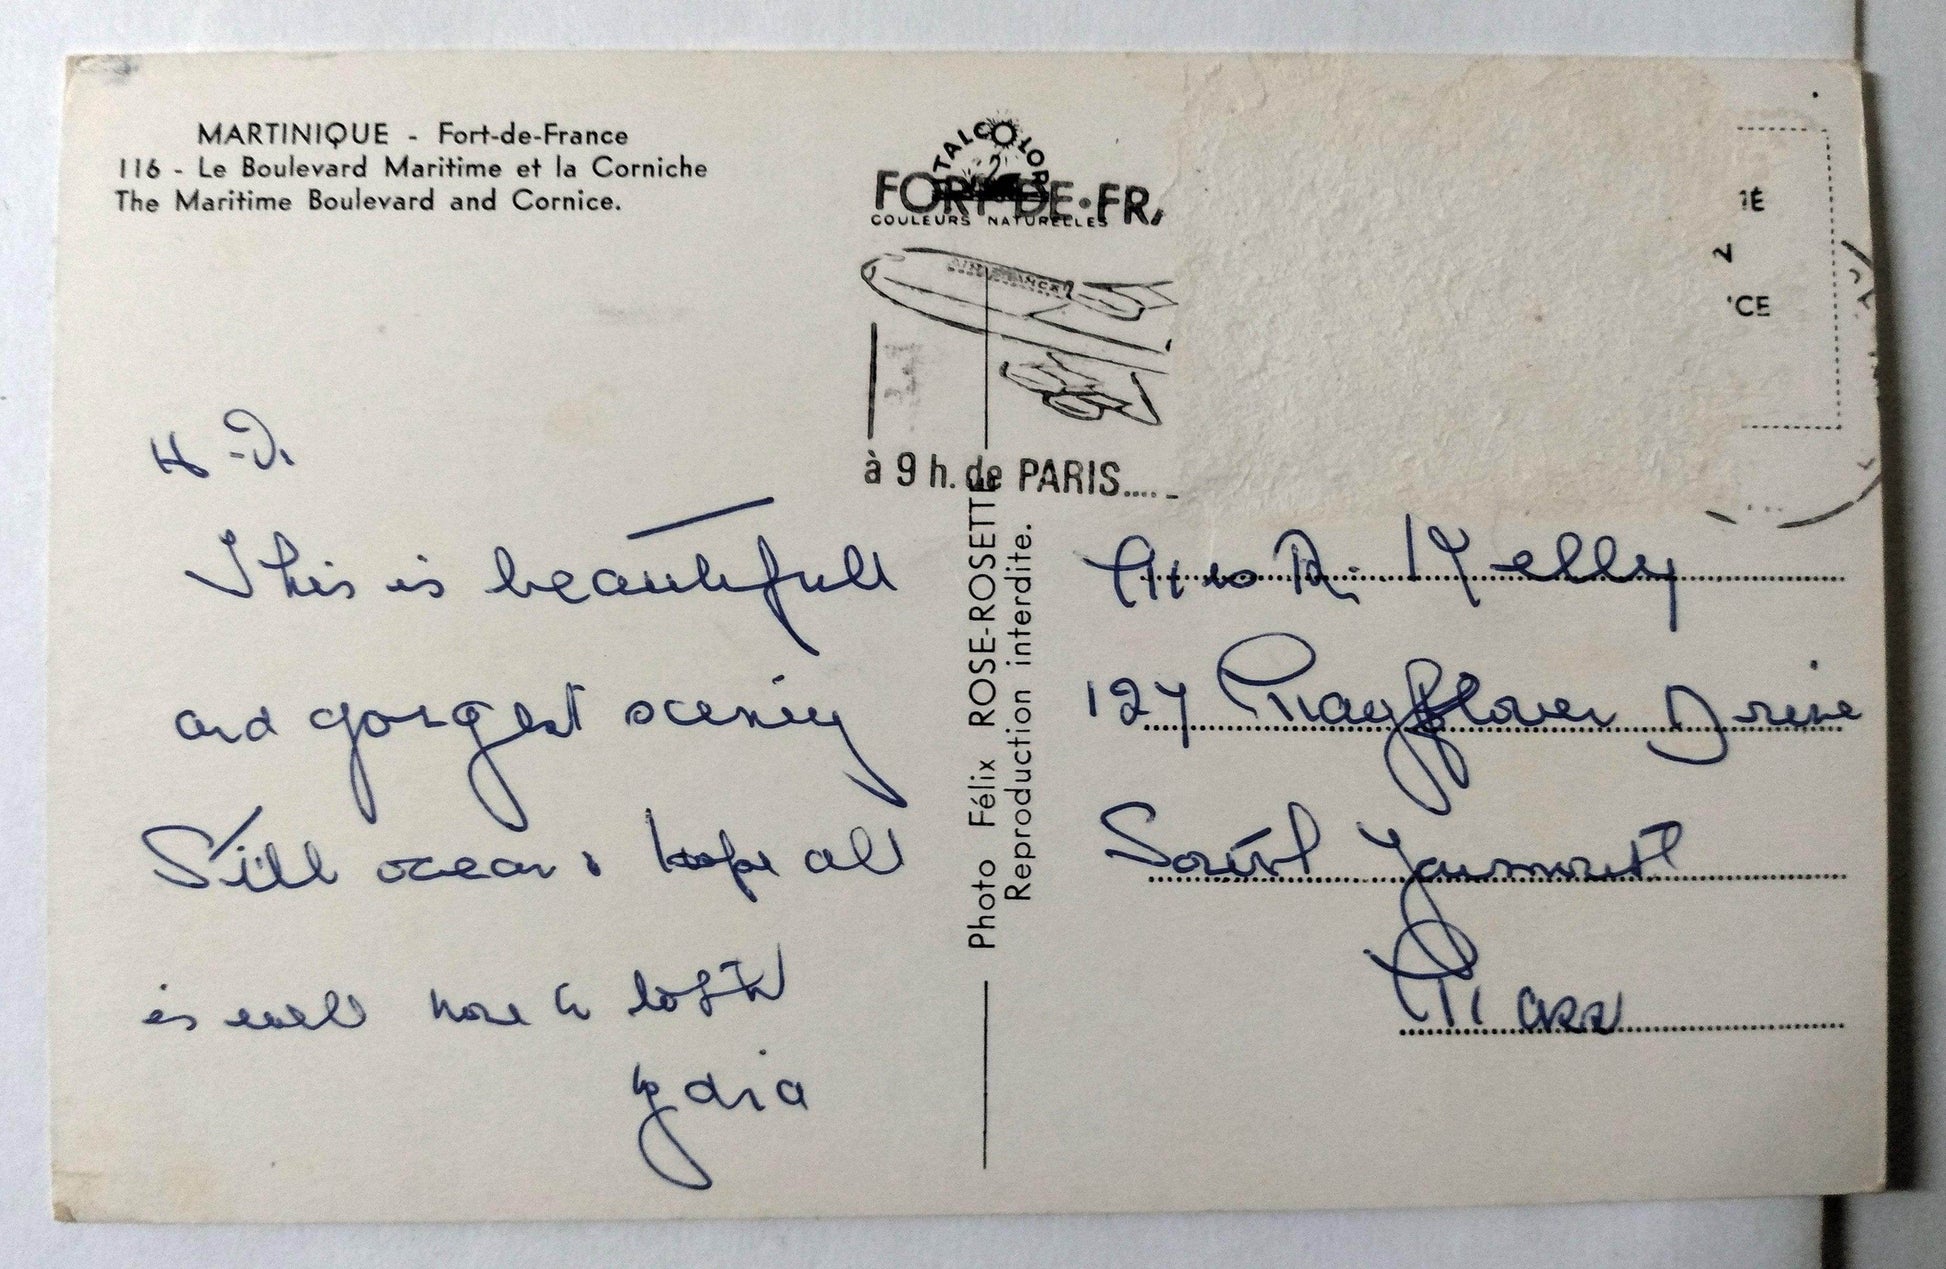 MARTINIQUE - Fort-de-France
116 - Le Boulevard Maritime et la Corniche
The Maritime Boulevard and Cornice.
ITALCOLOR
COULEURS NATURELLES
FORT-DE-FR
AIR FRANCE
à 9 h. de PARIS.....
IÉ
2
CE
This is beautifull
and gorgest scenery
Still ocean & hope all
is well
Lydia
Photo Félix ROSE-ROSETTE
Reproduction interdite.
R. Kelly
127 Mayflower Drive
South Yarmouth
Mass